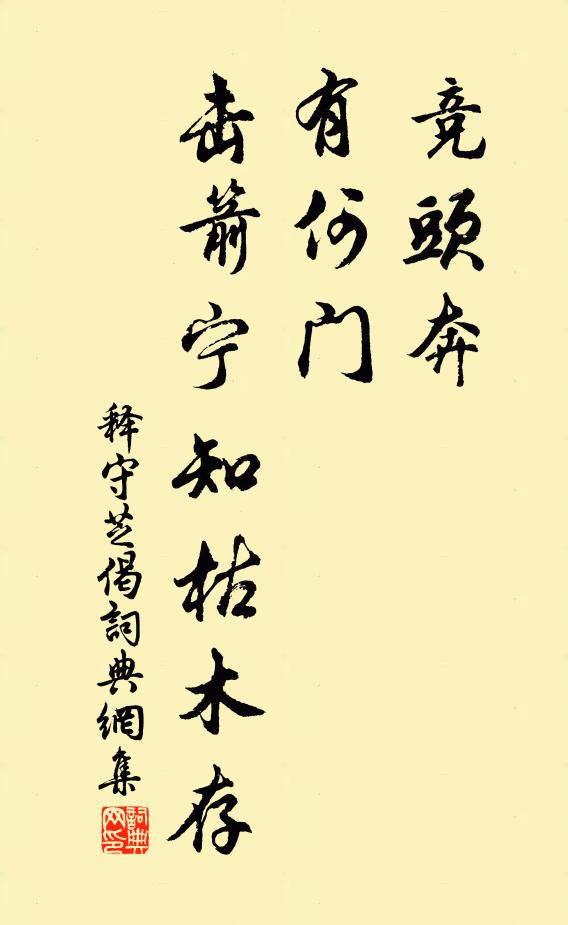 竞頭奔
有何门
击箭宁知枯木存
释守芝偈詞典網集
詞典
网印